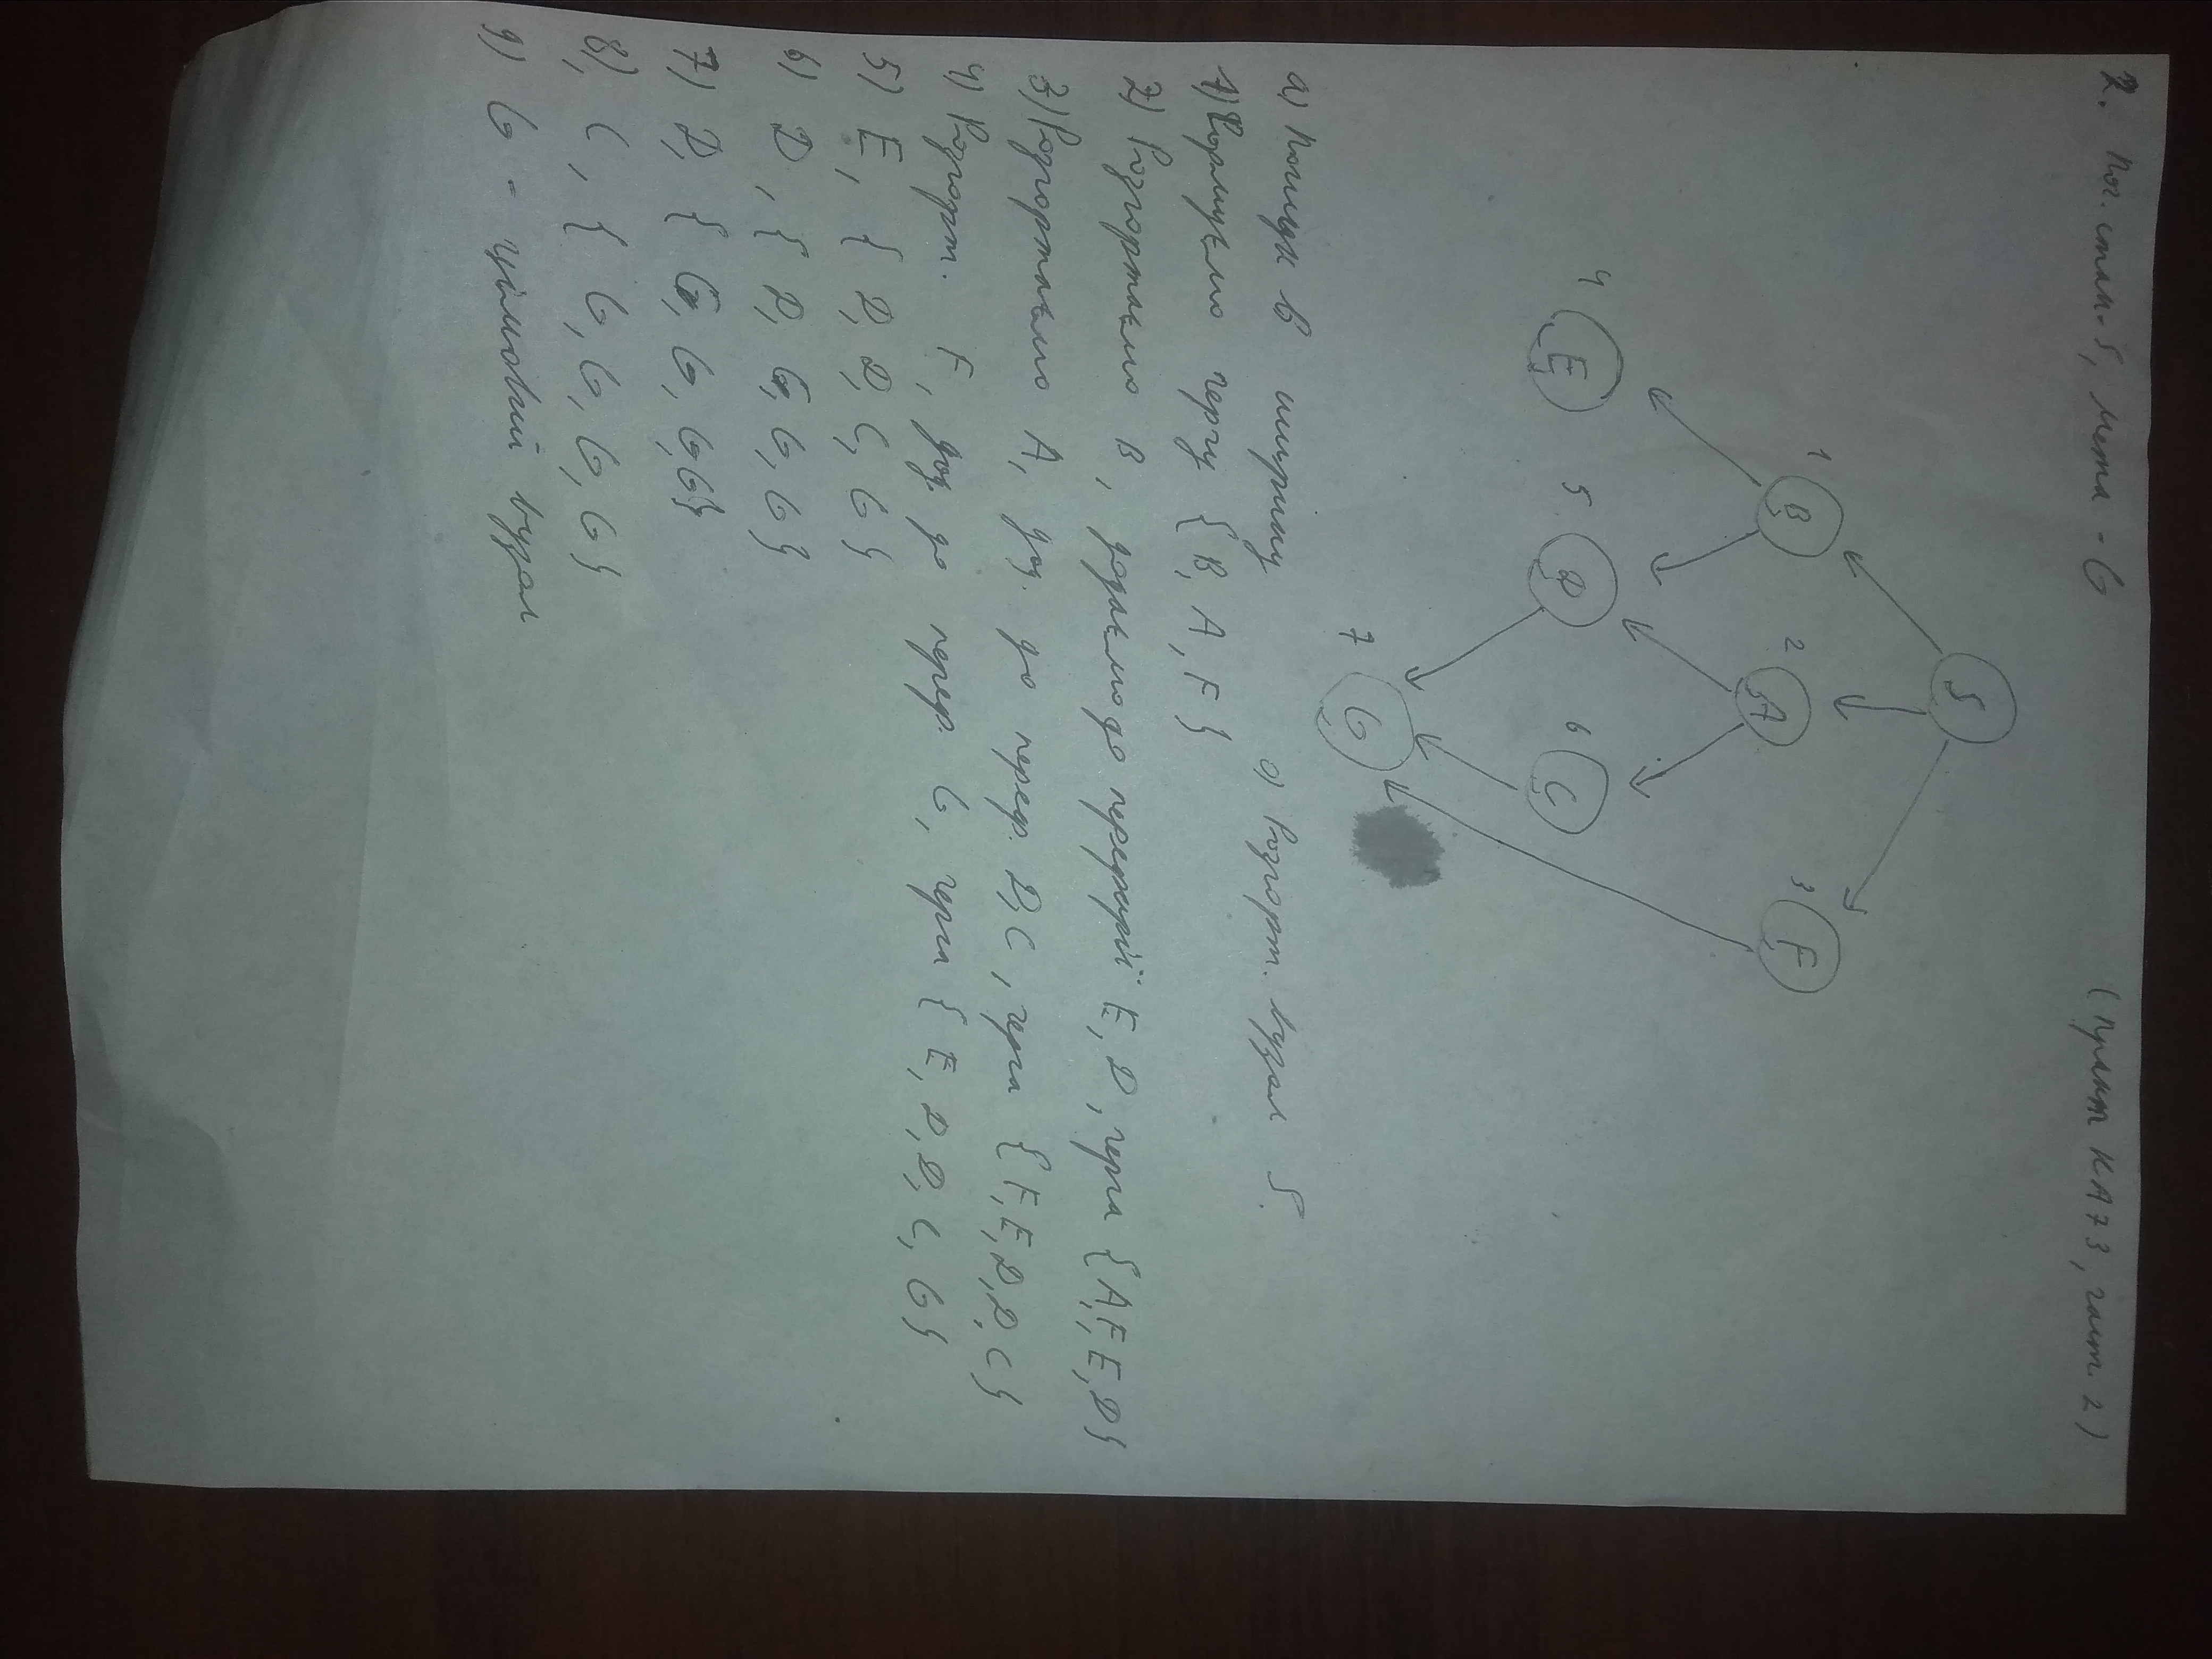 2. Поч. стан - S, мета - G (Пулат КА73, част. 2)
S
1 B 2 A 3 F
4 E 5 D 6 C
7 G
а) Пошук в ширину 0) Розгорт. вузол S.
1) Формуємо чергу { B, A, F }
2) Розгортаємо B, додаємо до периферії E, D, черга {A, F, E, D}
3) Розгортаємо A, дод. до периф. D, C, черга { F, E, D, D, C }
4) Розгорт. F, дод. до периф. G, черга { E, D, D, C, G }
5) E, { D, D, C, G }
6) D, { D, C, G, G }
7) D, { C, G, G, G }
8) C, { G, G, G, G }
9) G - цільовий вузол